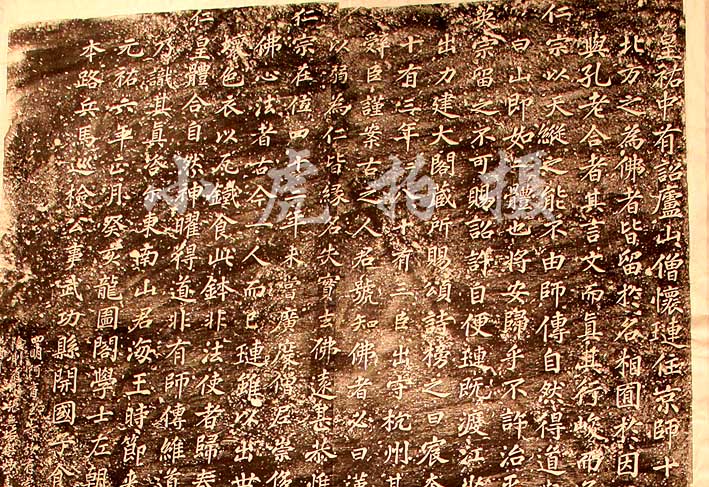 皇祐中有詔廬山僧懷璉住京師十
北方之為佛者皆留於名相囿於因
與孔老合者其言文而真其行峻而
仁宗以天縱之能不由師傳自然得道
曰山即如如體也將安歸乎不許治平
英宗留之不可賜詔許自便璉既渡江
出力建大閣藏所賜頌詩榜之曰宸奎
十有三年 十有三臣出守杭州其
臣謹案古之人君號知佛者必曰漢
以弱為仁皆緣名失實去佛遠甚恭惟
仁宗在位四十二年未嘗廣度僧尼崇侈
佛心法者古今一人而已璉雖以出世
壞色衣以瓦鐵食此鉢非法使者歸奏
仁皇體合自然神曜得道非有師傳維道
乃識其真咨爾東南山君海王時節來
元祐六年正月癸亥龍圖閣學士左朝
本路兵馬巡檢公事武功縣開國子食
小虎拍攝